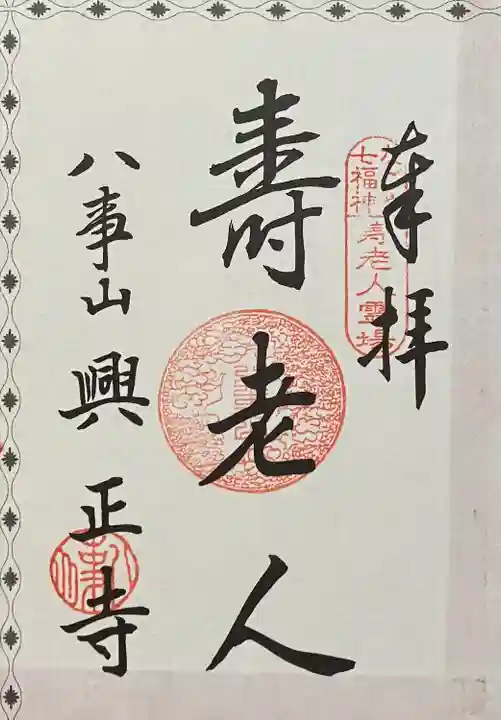 奉拝
七福神
寿老人霊場
寿老人
八事山興正寺